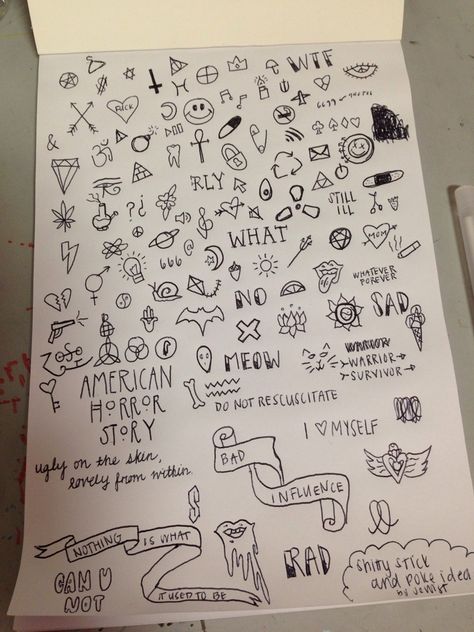 WTF
FUCK
&
RLY
STILL
ILL
??
WHAT
MOM
666
@
WHATEVER
FOREVER
NO
SAD
MEOW
WARRIOR
WARRIOR
SURVIVOR
AMERICAN
HORROR
STORY
DO NOT RESCUSCITATE
I ♡ MYSELF
ugly on the skin,
lovely from within.
BAD
INFLUENCE
NOTHING
IS WHAT
IT USED TO BE
CAN U
NOT
RAD
shitty stick
and poke idea